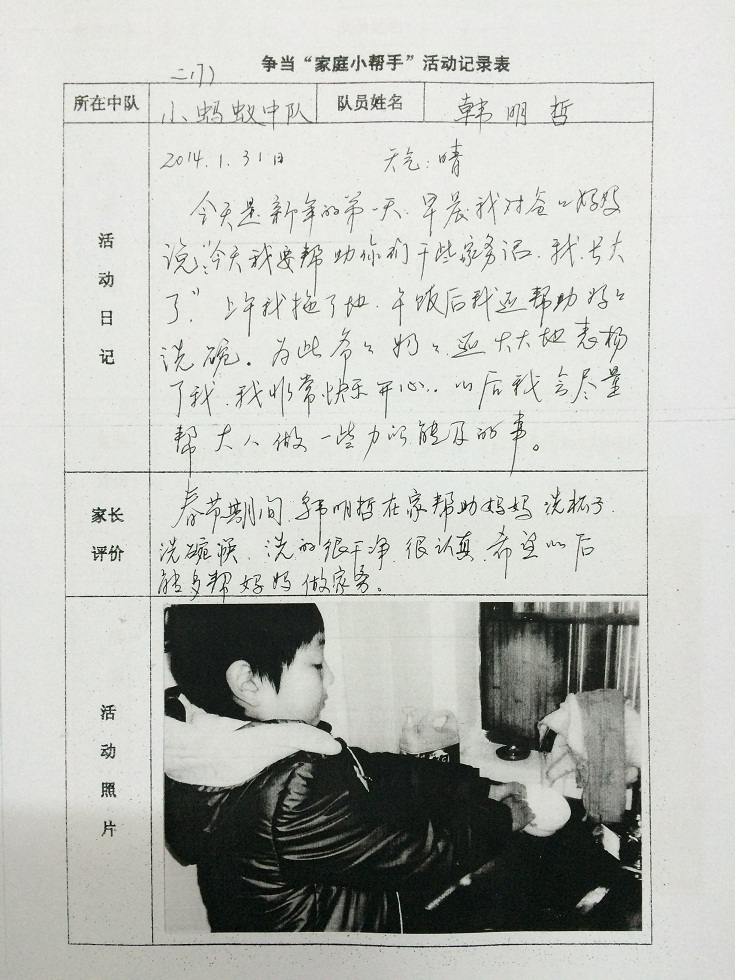 争当“家庭小帮手”活动记录表
二(7)
所在中队 小蚂蚁中队 队员姓名 韩明哲
活动日记
2014.1.31日 天气:晴
今天是新年的第一天.早晨我对爸々妈妈
说:“今天我要帮助你们干些家务活.我长大
了”上午我拖了地.午饭后我还帮助妈々
洗碗。为此爷々奶々还大大地表杨
了我.我非常快乐开心..以后我会尽量
帮大人做一些力所能及的事。
家长评价
春节期间.韩明哲在家帮助妈妈洗杯子.
洗碗筷.洗的很干净.很认真.希望以后
能多帮妈妈做家务。
活动照片